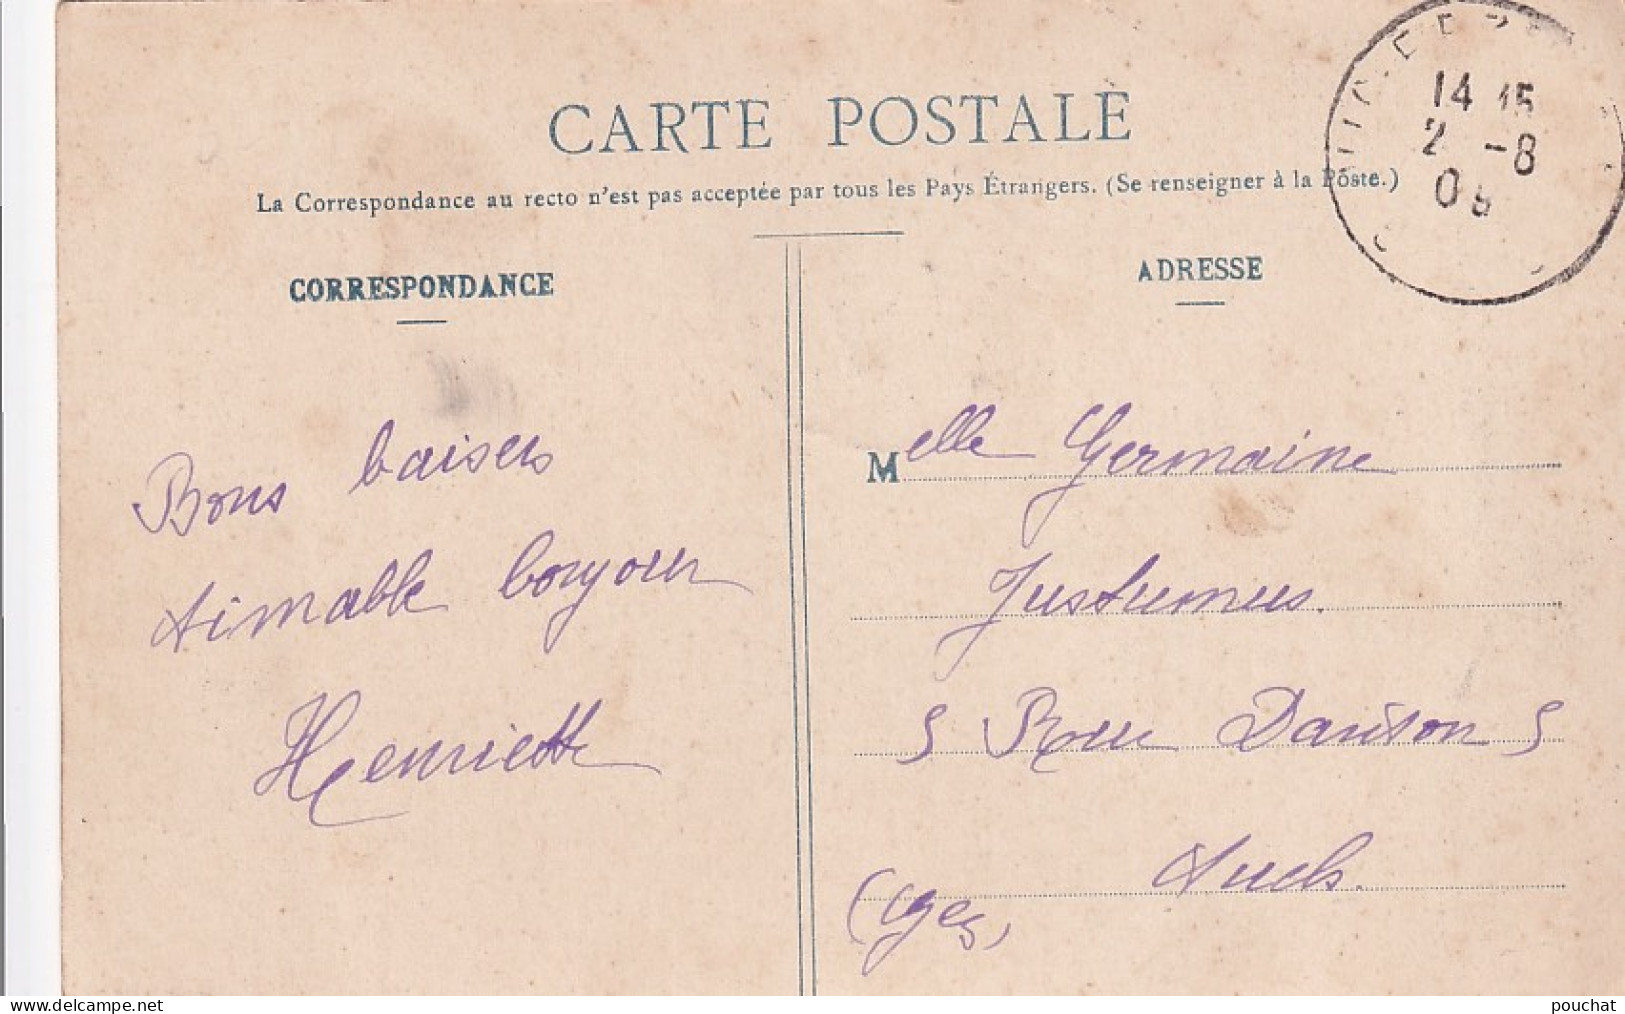 CARTE POSTALE
La Correspondance au recto n'est pas acceptée par tous les Pays Étrangers. (Se renseigner à la Poste.)
14 15
2 -8
09
CORRESPONDANCE
Bons baisers
Aimable bonjour
Henriette
ADRESSE
Melle Germaine
Justumus.
5 Rue Danton 5
Auch.
(Gers)
www.delcampe.net
pouchat